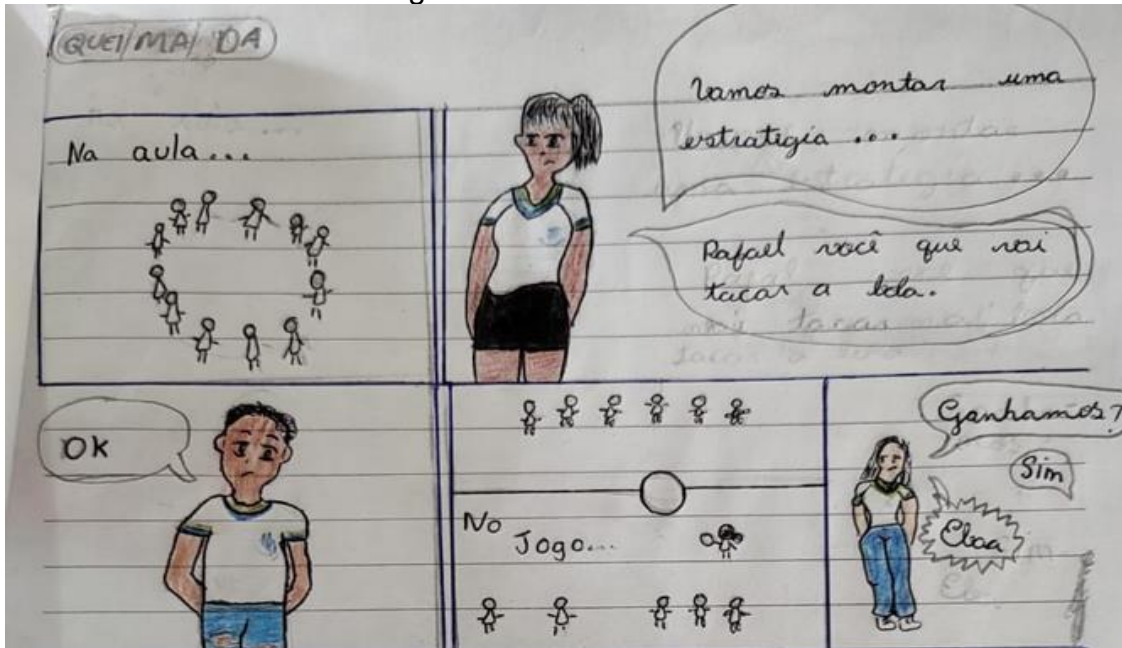 QUEI/MA/DA
Na aula...
Vamos montar uma
estratigia ...
Rafael você que vai
tacar a bola.
OK
No
Jogo...
Ganhamos?
Sim
Eboa